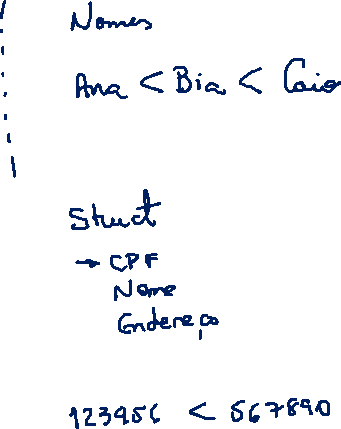 Nomes
Ana < Bia < Caio
Struct
→ CPF
Nome
Endereço
123456 < 567890